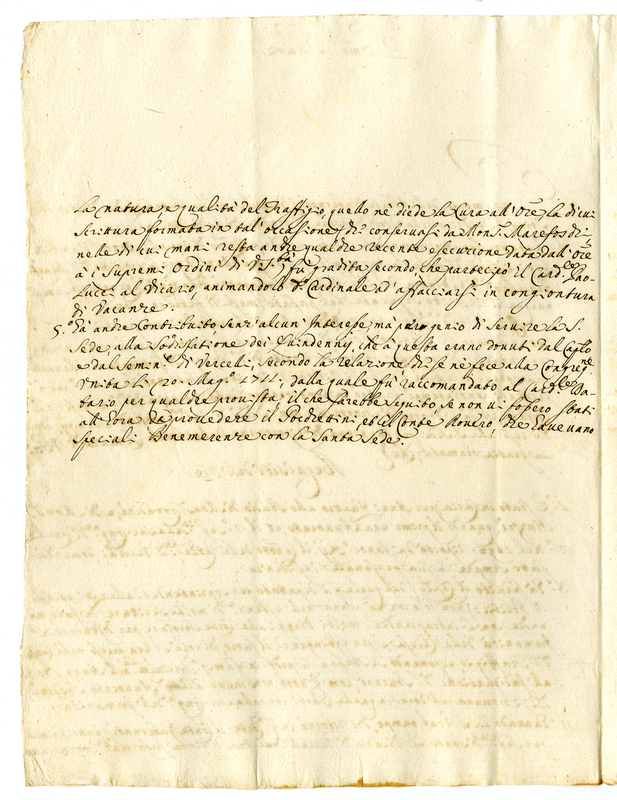 la natura, e qualità del Traffigio, quello nè diede la Cura all'Ore, la di cui
scrittura formata in tal'occasione si conservasi da Mons.r Marefoschi,
nelle di cui mani resta anche qualche recente esecuzione data dall'Ore
à i supremi ordini di V. S.tà fù gradita secondo, che partecipò il Card.le Pao-
lucci al Vicario, animandolo d.o Cardinale ad affacciarsi in congiontura
di Vacanze.
5.o Hà anche Contribuito senz'alcun Interesse, mà pero genio di servire la S.
Sede, alla sodisfatione dei Quindennij, che à questa erano dovuti dal Cap.lo
e dal Semin.o di Vercelli, secondo la relazione che se nè fece alla Congreg.ne
Unita li 20. Mag.o 1711, dalla quale fù raccomandato al Card.le Da-
tario per qualche provista, il che sarebbe seguito, se non vi fossero stati
all'hora da provedere il
ed il Conte Rovero, che havevano
speciali Benemerenze con la Santa Sede.